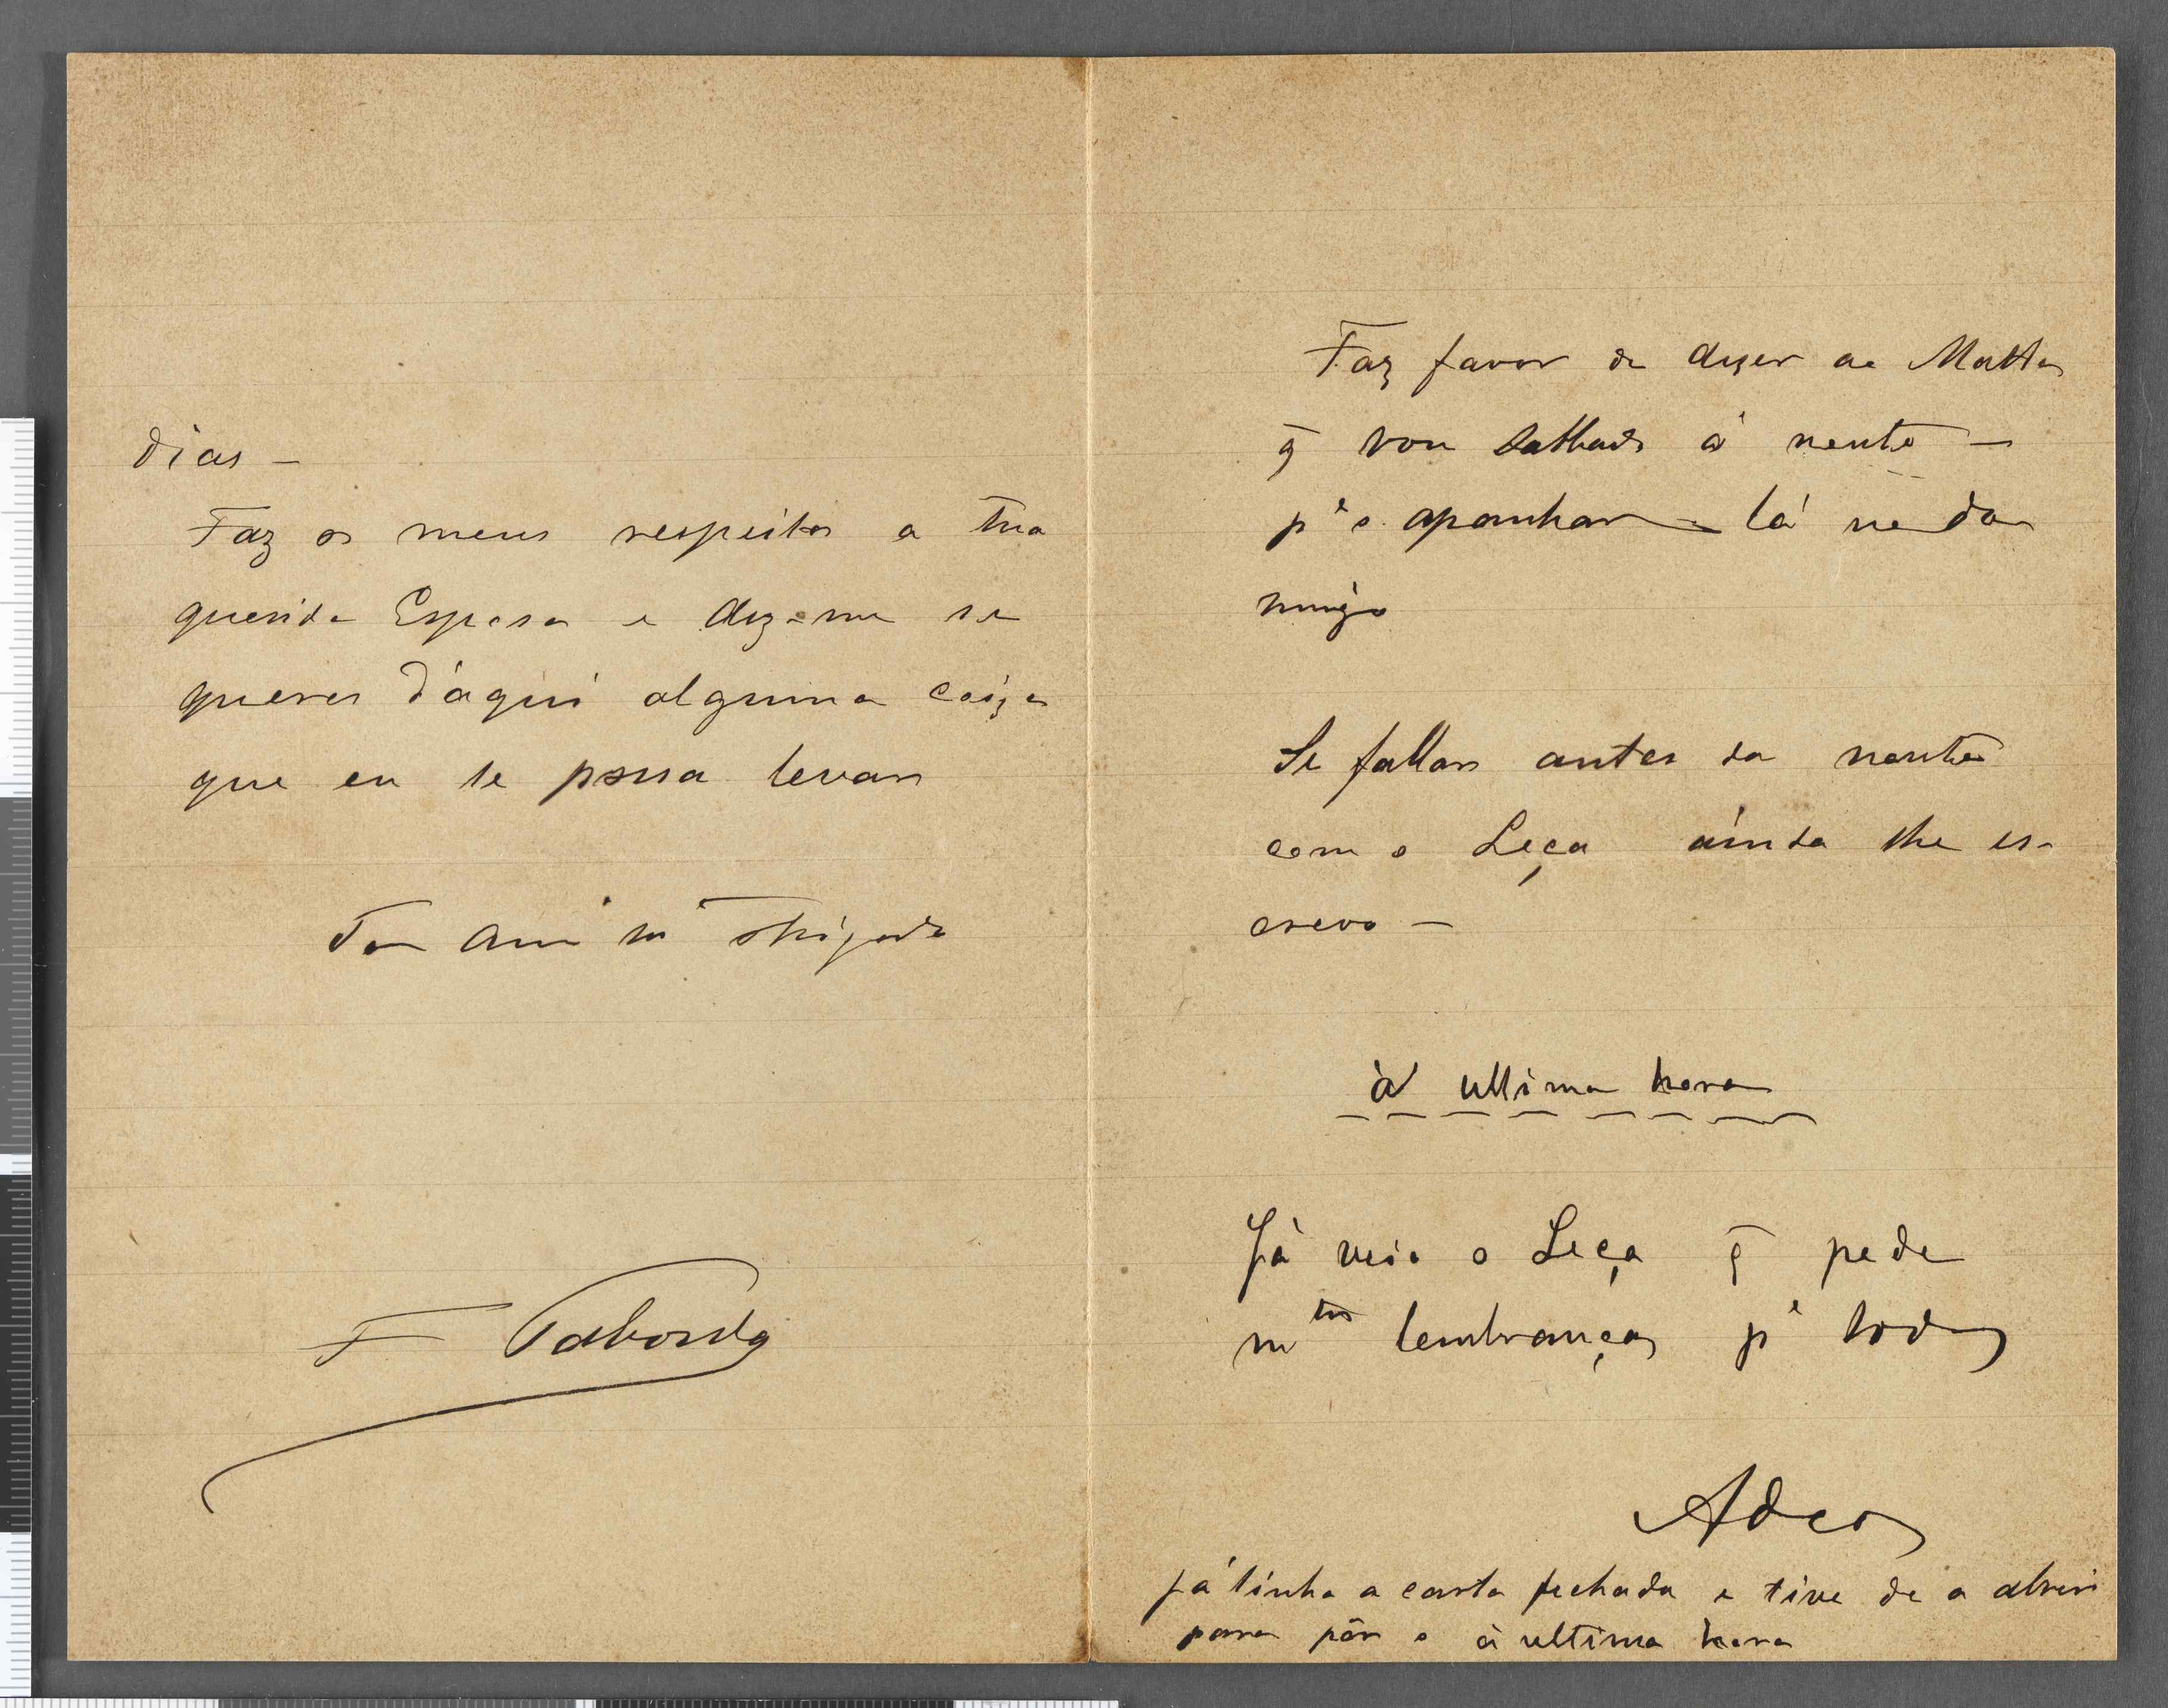 dias –
Faz os meus respeitos a tua
querida Esposa e diz-me se
queres d'aqui alguma coiza
que eu te possa levar
Teu amº mº obrigado
F Taborda
Faz favor de dizer ao Mattos
q̄ vou sabbado á noute –
pª o apanhar – lá no do
mingo
Se fallar antes da noute
com o Leça ainda lhe es-
crevo –
á ultima hora
Já veio o Leça q̄ pede
mtas lembranças pª todos
Adeos
Já tinha a carta fechada e tive de a abrir
para pôr o á ultima hora